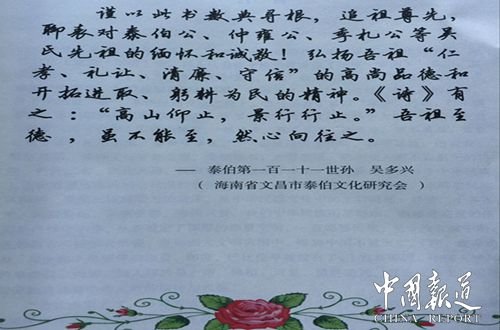 谨以此书数典寻根，追祖尊先，
聊表对泰伯公、仲雍公、季札公等吴
氏先祖的缅怀和诚敬！弘扬吾祖“仁
孝、礼让、清廉、守信”的高尚品德和
开拓进取、躬耕为民的精神。《诗》有
之：“高山仰止，景行行止。”吾祖至
德，虽不能至，然心向往之。
— 泰伯第一百一十一世孙 吴多兴
（海南省文昌市泰伯文化研究会）
中国報道
CHINA REPORT